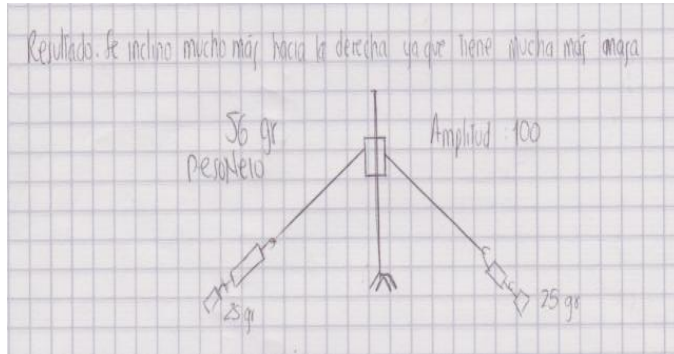 Resultado. Se inclino mucho más hacia la derecha ya que tiene mucha más masa
56 gr
Peso Neto
Amplitud : 100
25 gr
25 gr